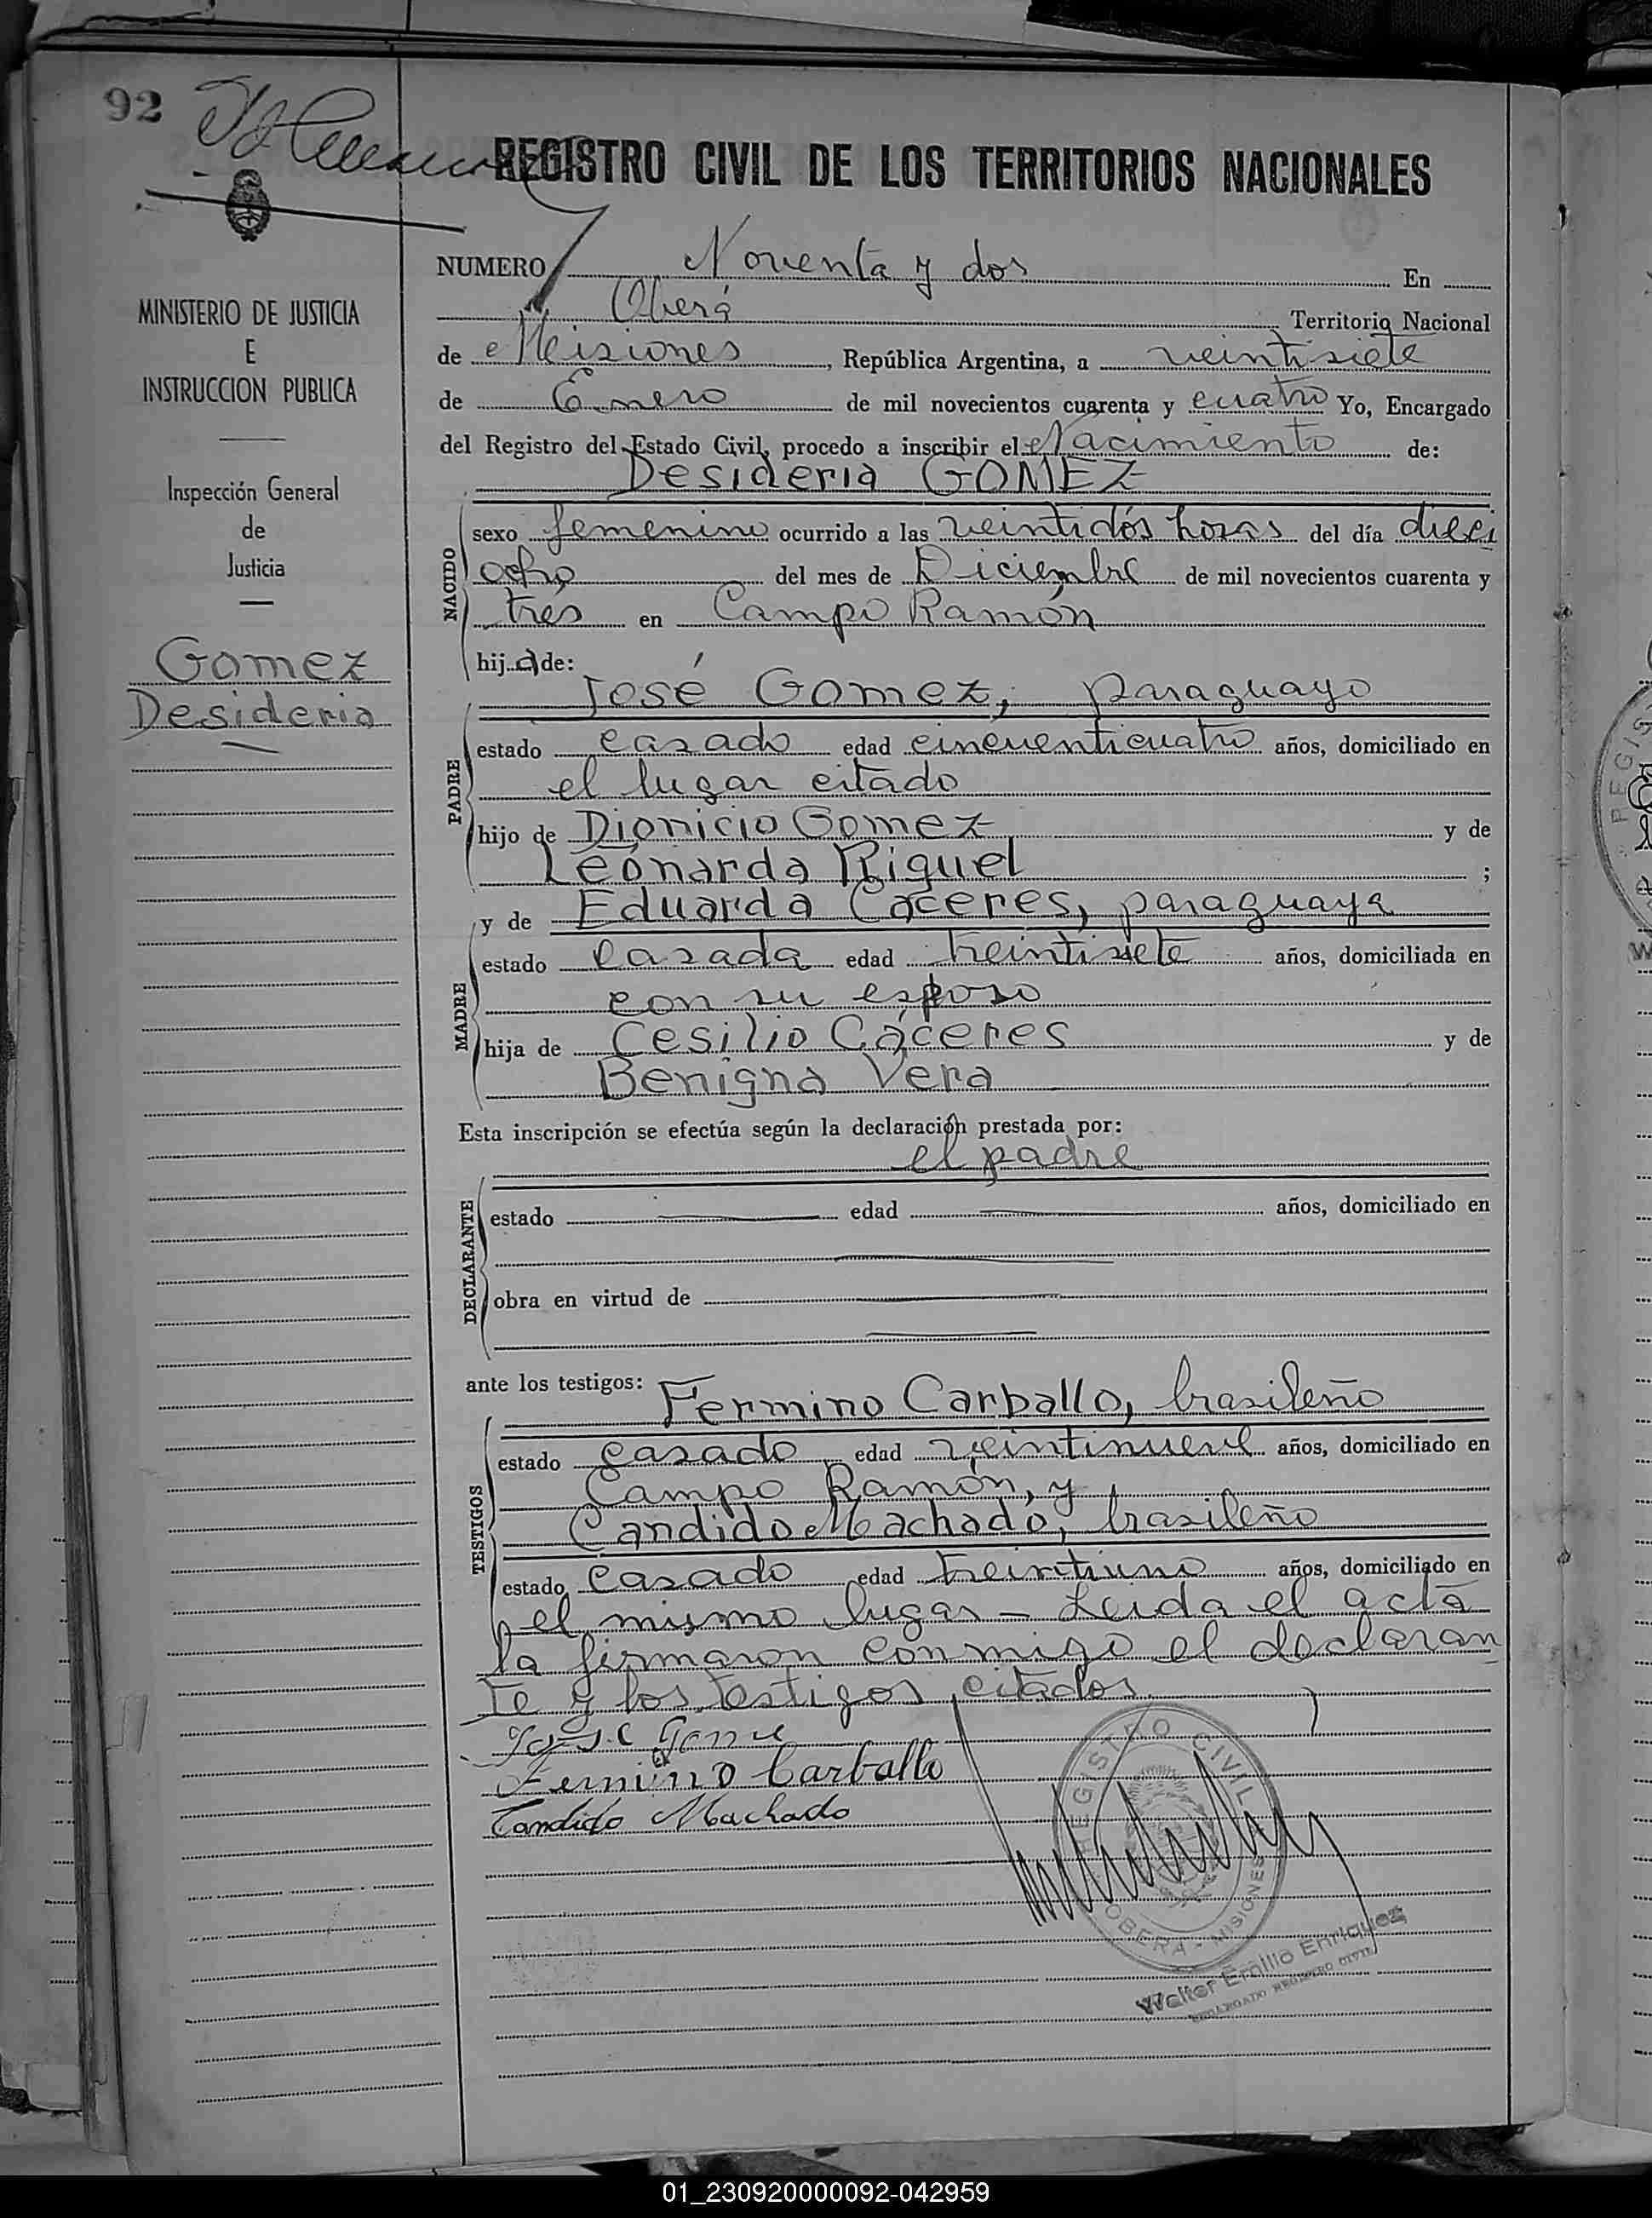 92
REGISTRO CIVIL DE LOS TERRITORIOS NACIONALES
MINISTERIO DE JUSTICIA
E
INSTRUCCION PUBLICA
Inspección General
de
Justicia
Gomez
Desideria
NUMERO Noventa y dos En
Oberá Territorio Nacional
de Misiones, República Argentina, a veintisiete
de Enero de mil novecientos cuarenta y cuatro Yo, Encargado
del Registro del Estado Civil, procedo a inscribir el Nacimiento de:
Desideria GOMEZ
NACIDO
sexo femenino ocurrido a las veintidós horas del día dieci
ocho del mes de Diciembre de mil novecientos cuarenta y
tres en Campo Ramón
hija de:
José Gomez, paraguayo
PADRE
estado casado edad cincuenticuatro años, domiciliado en
el lugar citado
hijo de Dionicio Gomez y de
Leonarda Riquel ;
y de Eduarda Cáceres, paraguaya
MADRE
estado casada edad treintisiete años, domiciliada en
con su esposo
hija de Cesilio Cáceres y de
Benigna Vera
Esta inscripción se efectúa según la declaración prestada por:
el padre
DECLARANTE
estado edad años, domiciliado en
obra en virtud de
ante los testigos:
Fermino Carballo, brasileño
TESTIGOS
estado casado edad veintinueve años, domiciliado en
Campo Ramón, y
Candido Machado, brasileño
estado casado edad treintiuno años, domiciliado en
el mismo lugar - Leida el acta
la firmaron conmigo el declaran
te y los testigos citados.
José Gome
Fermino Carballo
Candido Machado
REGISTRO CIVIL
OBERA - MISIONES
Walter Emilio Enriquez
ENCARGADO REGISTRO CIVIL
01_230920000092-042959